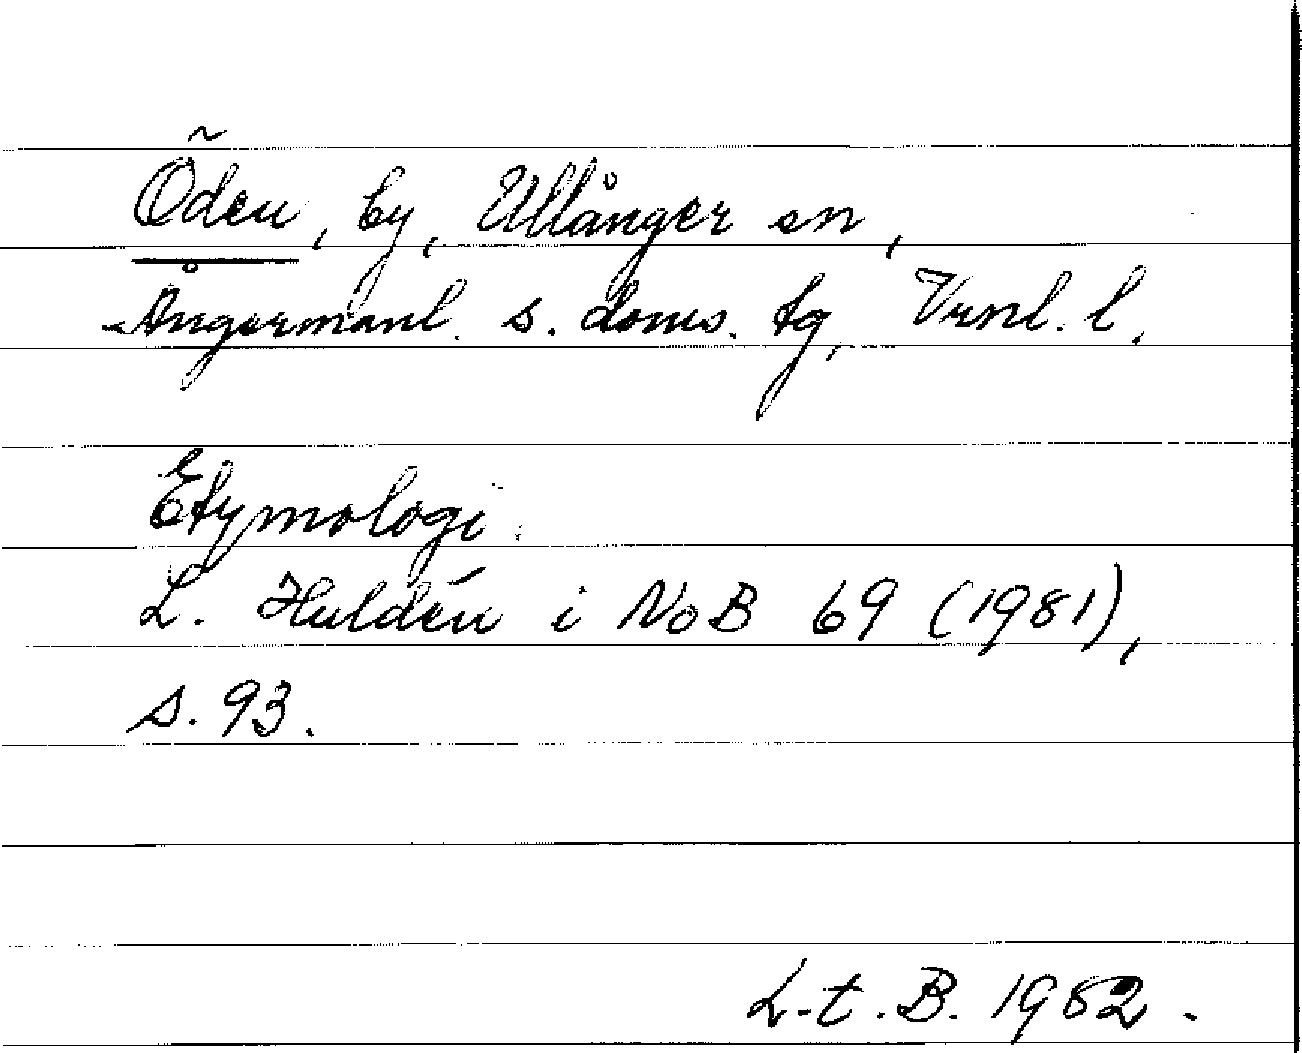 Öden, by, Ullånger sn,
Ångermanl. s. doms. tg, Vrnl. l.
Etymologi:
L. Huldén i NoB 69 (1981),
s. 93.
L.t.B. 1982.